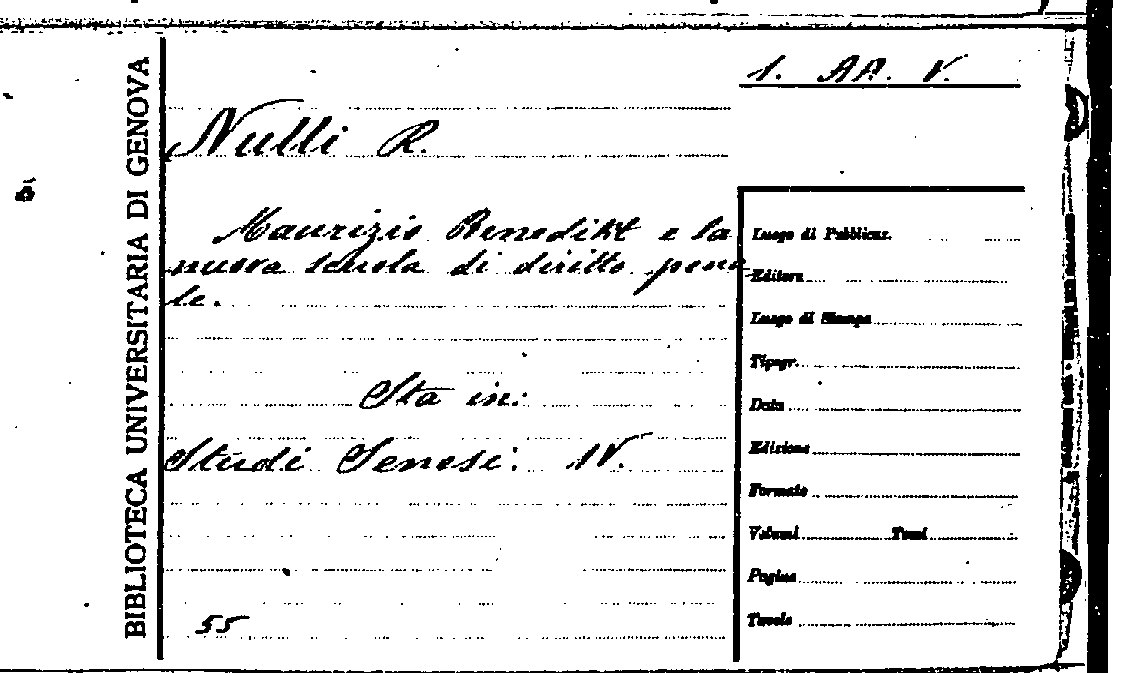 BIBLIOTECA UNIVERSITARIA DI GENOVA
1. AA. V.
Nulli R.
Maurizio Benedikt e la
nuova scuola di diritto pena-
le.
Sta in:
Studi Senesi: IV.
55
Luogo di Pubblicaz.
Editore
Luogo di Stampa
Tipogr.
Data
Edizione
Formato
Volumi Tomi
Pagine
Tavole